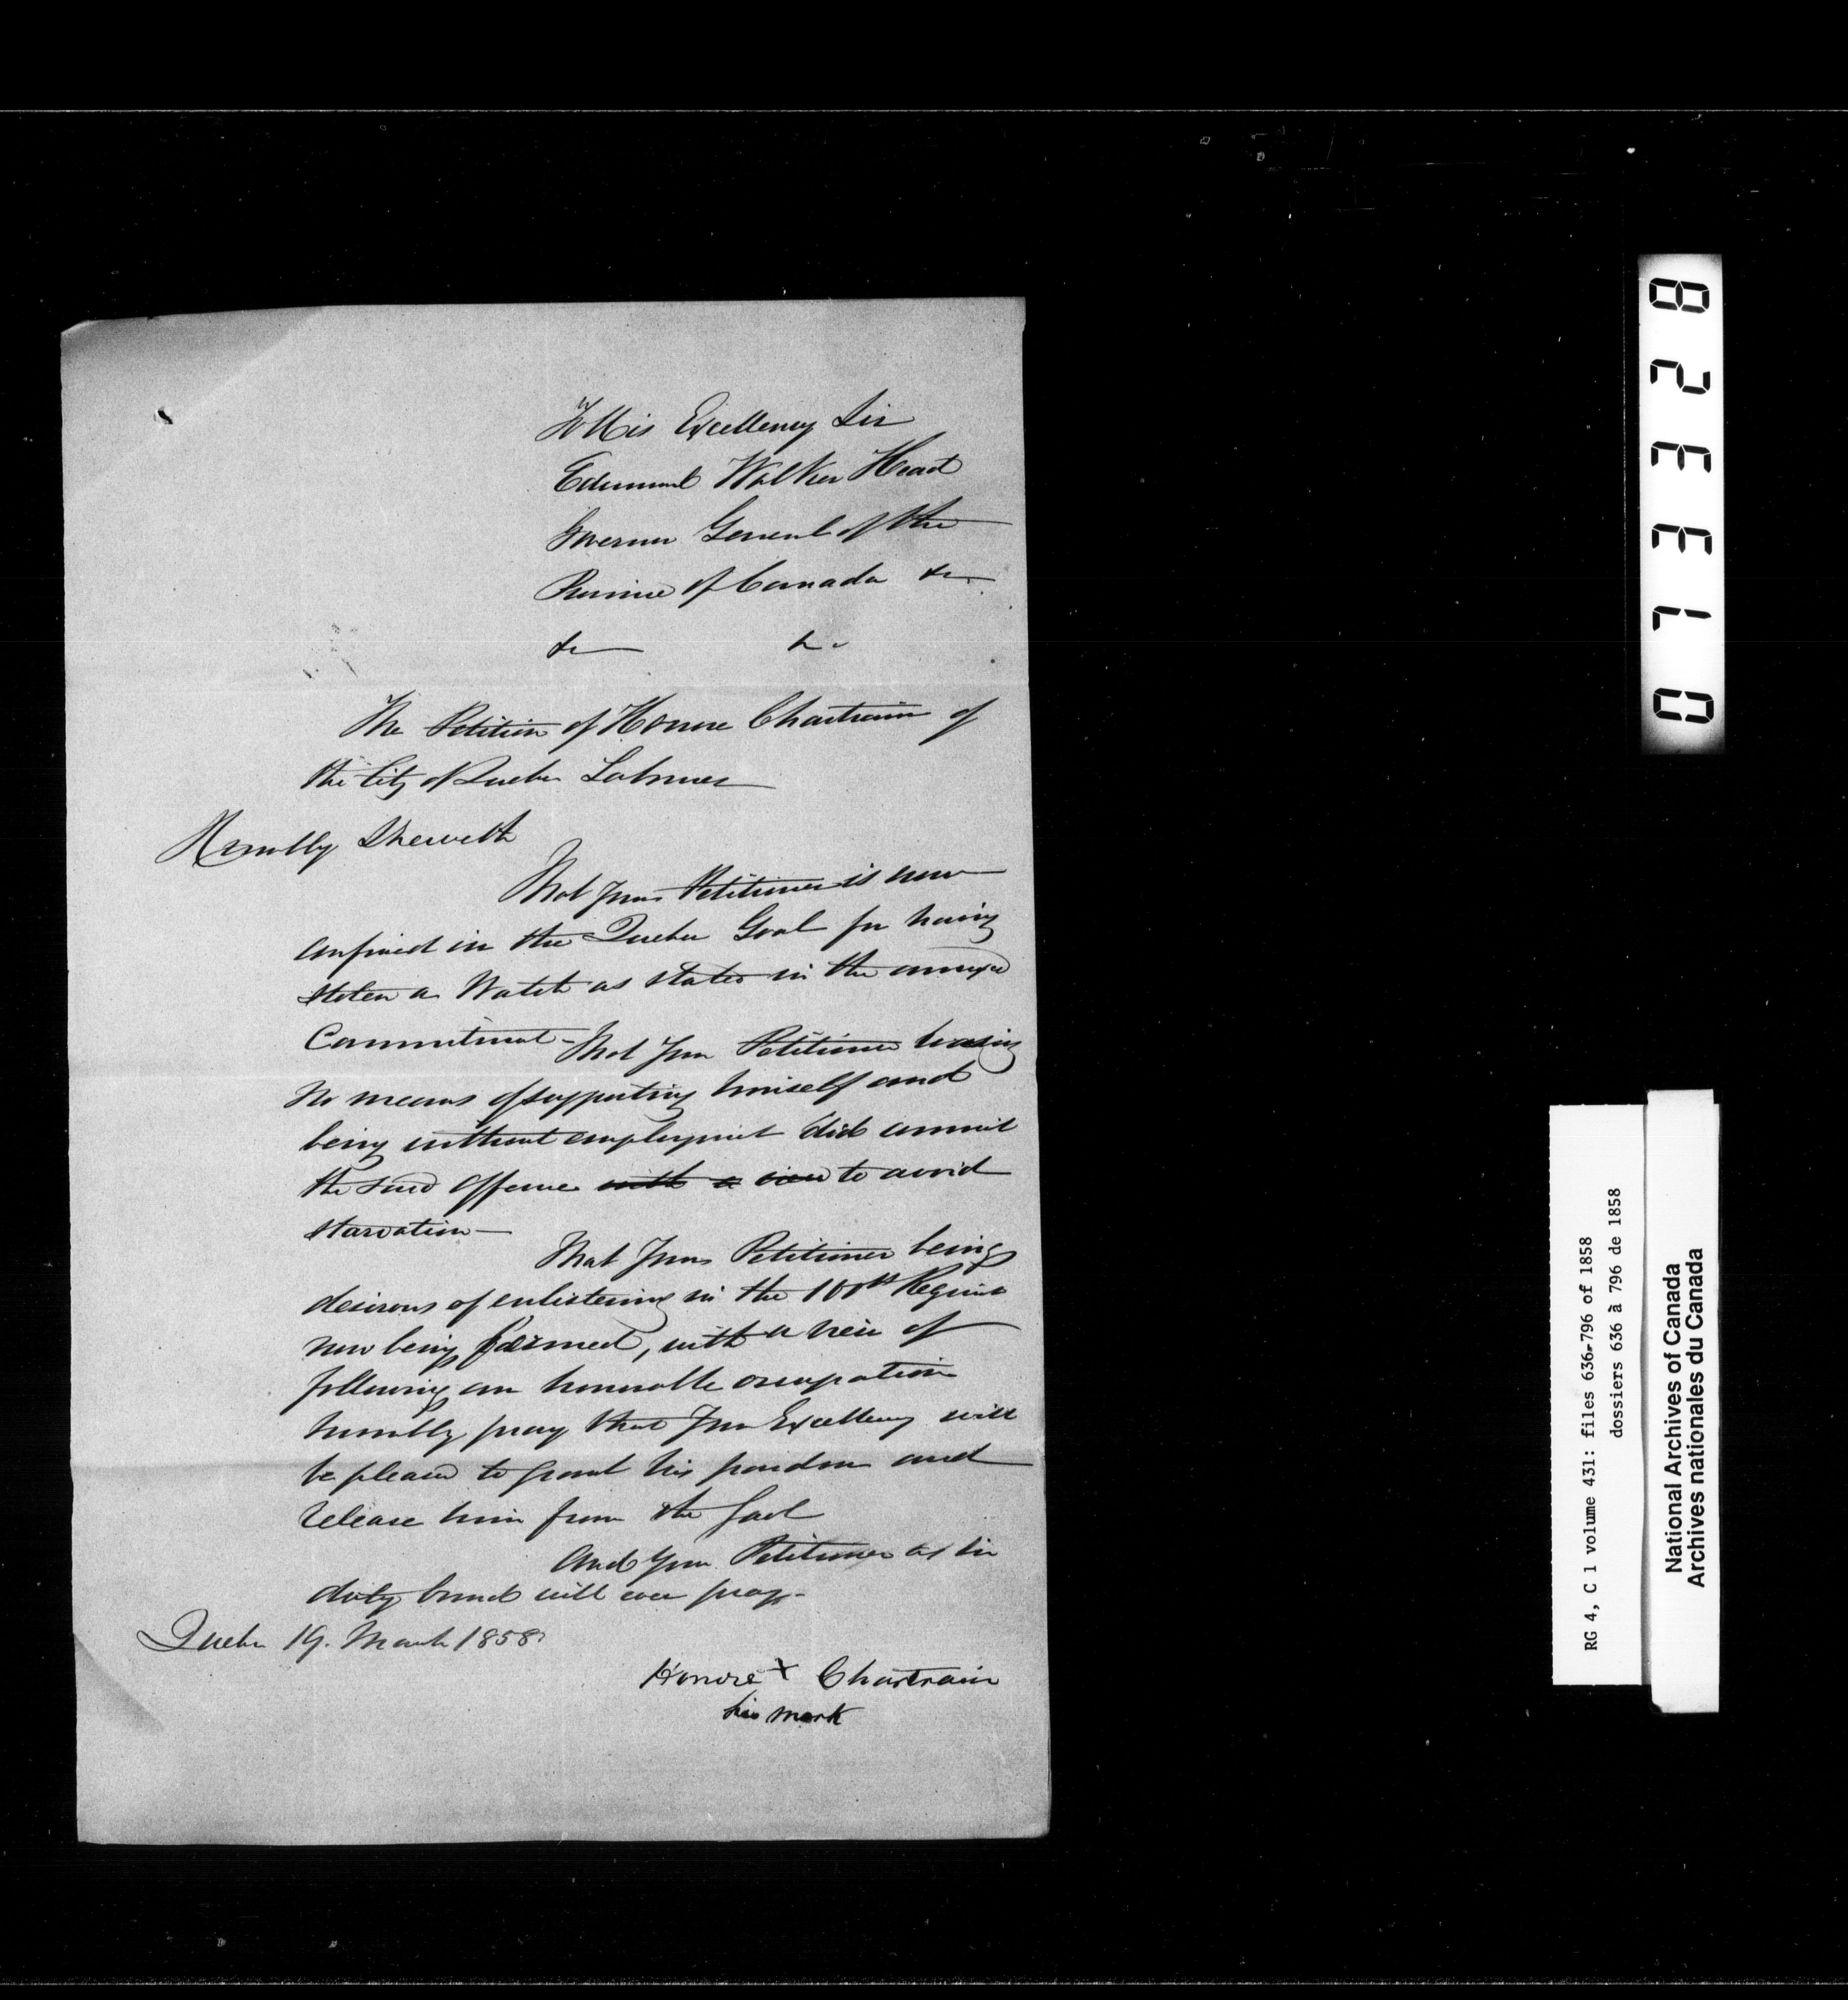 To His Excellency Sir
Edmund Walker Head
Governor General of the
Province of Canada &c
&c &c
The Petition of Honore Chartrain of
the City of Quebec Laborer
Humbly Sheweth
That Your Petitioner is now
confined in the Quebec Goal for having
stolen a Watch as stated in the annexed
Commitment - That Your Petitioner having
no means of supporting himself and
being without employment did commit
the said Offence with a view to avoid
starvation —
That Your Petitioner being
desirous of enlistering in the 100th Regiment
now being formed, with a view of
following an honorable occupation
humbly pray that Your Excellency will
be pleased to grant his pardon and
release him from the Gaol
And Your Petitioner as in
duty bound will ever pray -
Quebec 19. March 1858
Honoré X Chartrain
his mark
0713328
RG 4, C 1 volume 431: files 636-796 of 1858
dossiers 636 à 796 de 1858
National Archives of Canada
Archives nationales du Canada